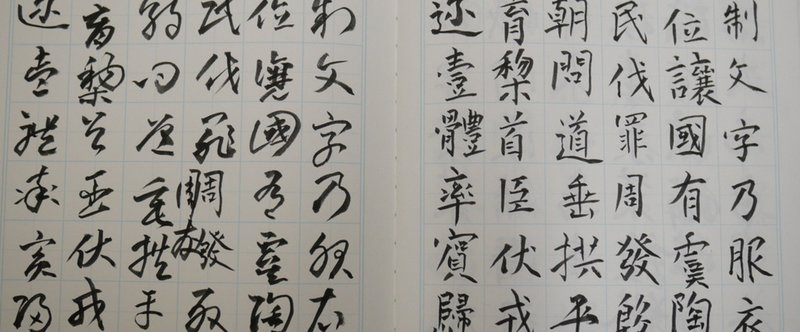 制文字乃服衣
位讓國有虞陶
民伐罪周發殷
朝問道垂拱平
育黎首臣伏戎
迩壹體率賓歸
制文字乃服衣
位讓國有虞陶
民伐罪周發殷
朝問道垂拱平
育黎首臣伏戎
迩壹體率賓歸